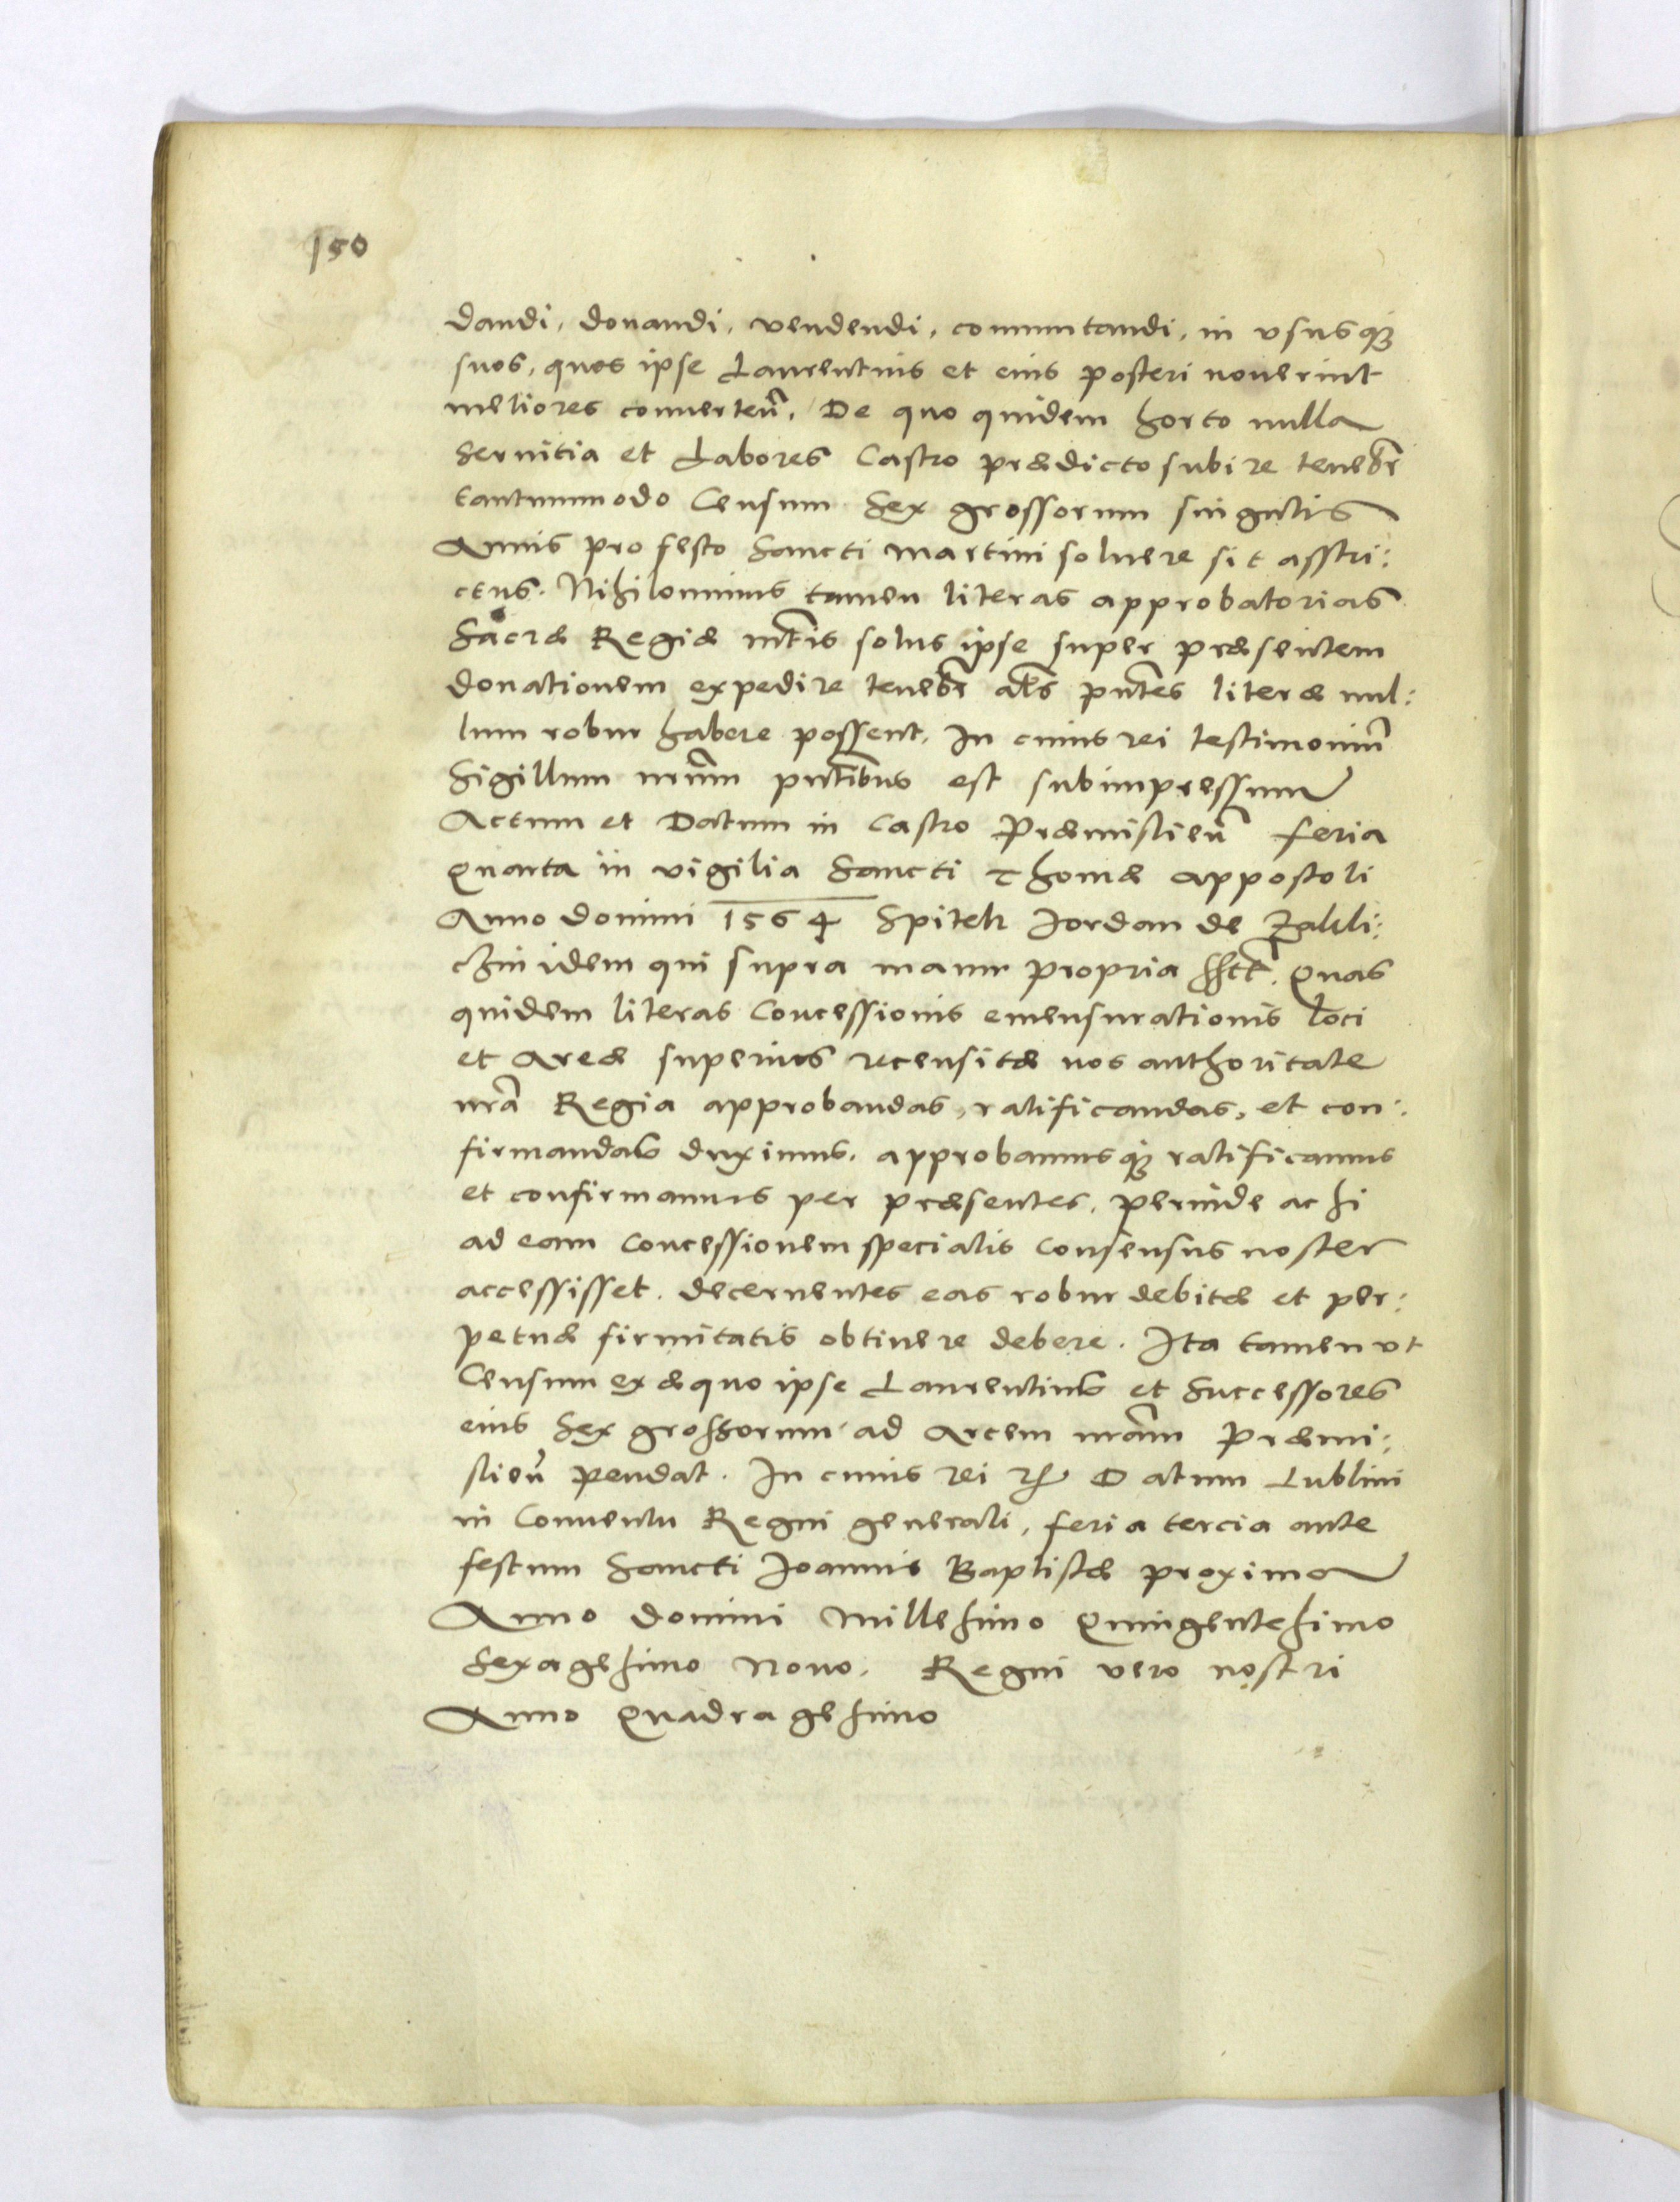 150
dandi, donandi, vendendi, commutandi, in vsusq3
suos, quos ipse Laurentius et eius posteri nouerint
meliores conuerteñ, De quo quidem horto nulla
Seruitia et Labores Castro prædicto subire tenebr
tantummodo Censum Sex grossorum singulis
Annis pro festo Sancti Martini soluere sit asstri:
ctus. Nihilominus tamen literas approbatorias
Sacræ Regiæ mtis solus ipse super præsentem
donationem expedire tenebr als pntes literæ nul:
lum robur habere possent, In cuius rei testimoniũ
Sigillum nrum pntibus est subimpressum
Actum et Datum in Castro Præmislieñ feria
Quarta in vigilia Sancti Thomæ Appostoli
Anno domini 1564 Spitek Jordan de Zakli:
czin idem qui supra manu propria sstt. Quas
quidem literas Concessionis emensurationis loci
et Areæ superius recensitæ nos authoritate
nrã Regia approbandas, ratificandas, et con:
firmandas duximus, approbamusq3 ratificamus
et confirmamus per præsentes, perinde ac si
ad eam Concessionem specialis Consensus noster
accessisset. decernentes eas robur debitæ et per:
petuæ firmitatis obtinere debere. Ita tamen vt
Censum ex æquo ipse Laurentius et Successores
eius Sex grossorum ad Arcem nram Præmi:
slieñ pendat. In cuius rei Datum Lublini
in Conuentu Regni generali, feria tercia ante
festum Sancti Joannis Baptistæ proxima
Anno Domini Millesimo Quingentesimo
Sexagesimo Nono. Regni vero nostri
Anno Quadragesimo